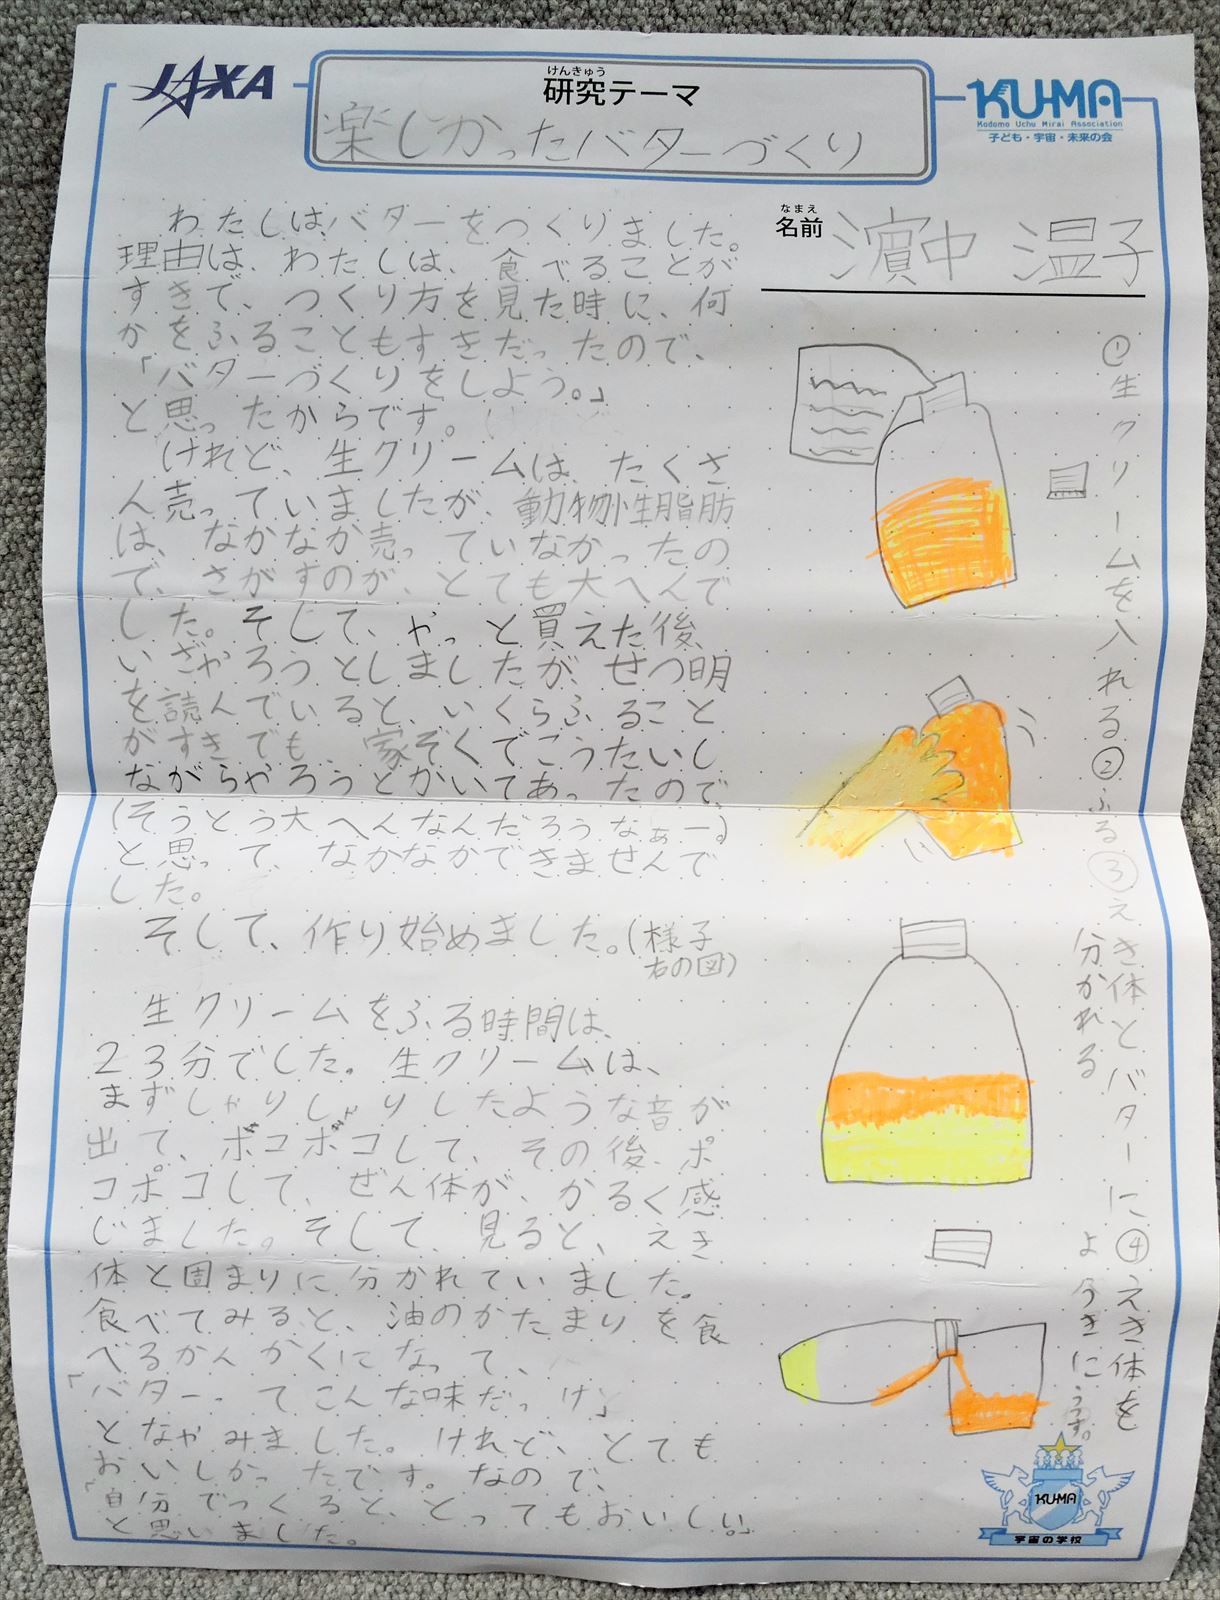 JAXA
けんきゅう
研究テーマ
楽しかったバターづくり
KU-MA
Kodomo Uchu Mirai Association
子ども・宇宙・未来の会
なまえ
名前
濵中 温子
わたしはバターをつくりました。
理由は、わたしは、食べることが
すきで、つくり方を見た時に、何
かをふることもすきだったので、
「バターづくりをしよう。」
と思ったからです。
けれど、生クリームは、たくさ
ん売っていましたが、動物性脂肪
は、なかなか売っていなかったの
で、さがすのが、とても大へんで
した。そして、やっと買えた後、
いざやろうとしましたが、せつ明
を読んでいると、いくらふること
がすきでも、家ぞくでこうたいし
ながらやろうとかいてあったので、
(そうとう大へんなんだろうなぁー。)
と思って、なかなかできませんで
した。
そして、作り始めました。(様子
右の図)
生クリームをふる時間は、
23分でした。生クリームは、
まずしゃりしゃりしたような音が
出て、ボコボコして、その後、ポ
コポコして、ぜん体が、かるく感
じました。そして、見ると、えき
体と固まりに分かれていました。
食べてみると、油のかたまりを食
べるかんかくになって、
「バターってこんな味だっけ」
となやみました。けれど、とても
おいしかったです。なので、
「自分でつくると、とってもおいしい。」
と思いました。
①生クリームを入れる②ふる③えき体とバターに
分かれる
④えき体を
ようきにうつす。
KU-MA
宇宙の学校